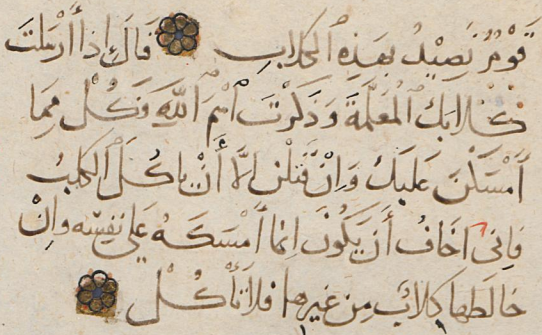 قَوْمٌ نَصِيدُ بِهَذِهِ الْكِلَابِ ۝ قَالَ إِذَا أَرْسَلْتَ
كِلَابَكَ الْمُعَلَّمَةَ وَذَكَرْتَ اسْمَ اللَّهِ فَكُلْ مِمَّا
أَمْسَكْنَ عَلَيْكَ وَإِنْ قَتَلْنَ إِلَّا أَنْ يَأْكُلَ الْكَلْبُ
فَإِنِّي أَخَافُ أَنْ يَكُونَ إِنَّمَا أَمْسَكَهُ عَلَى نَفْسِهِ وَإِنْ
خَالَطَهَا كِلَابٌ مِنْ غَيْرِهَا فَلَا تَأْكُلْ ۝